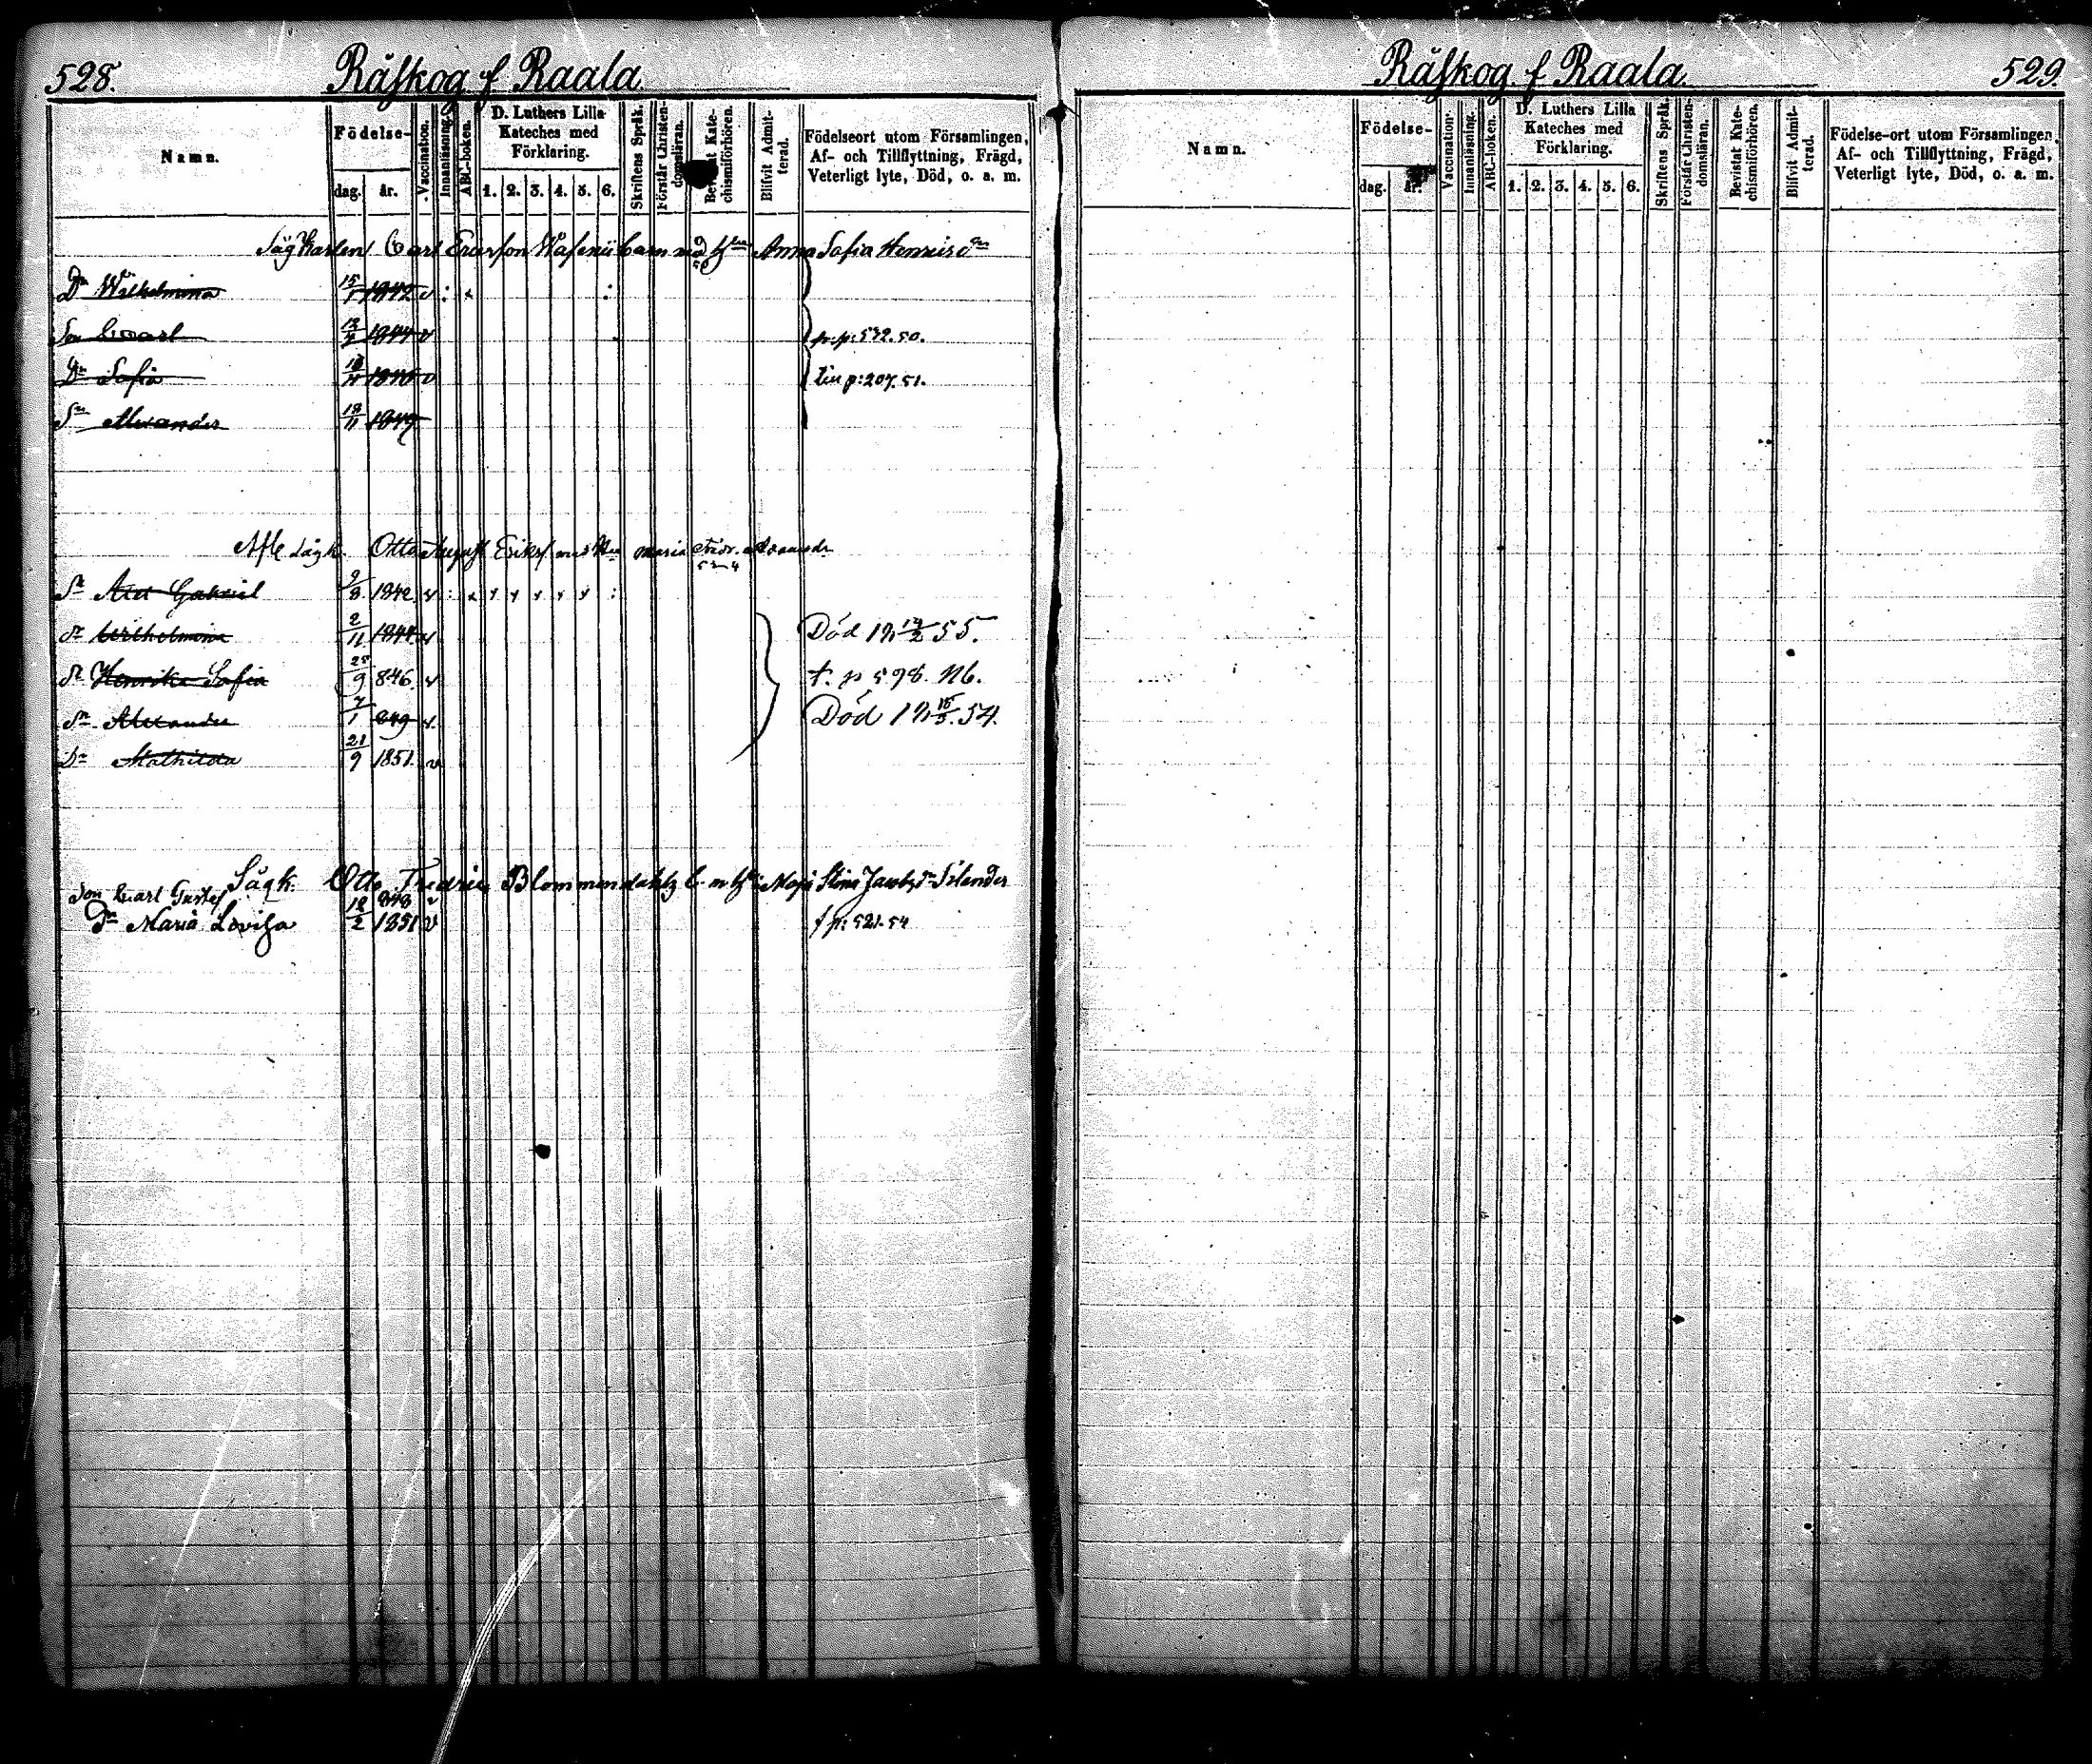 528. Råskog f Raala
Namn. Födelse- dag. år. Vaccination. Innanläsning. ABC-boken. D. Luthers Lilla Kateches med Förklaring. 1. 2. 3. 4. 5. 6. Skriftens Språk. Förstår Christendomsläran. Bevistat Katechismiförhören. Blifvit Admitterad. Födelseort utom Församlingen, Af- och Tillflyttning, Frägd, Veterligt lyte, Död, o. a. m.
Carl Ericsson barn med Anna Sofia
Dr Wilhelmina 15/1 1842 v
Son 1844 v fr. p: 532. 50.
Dr Sofia v till p: 207. 51.
Sn Alexander 18/11 1849
Otto August Eriks med Maria
Sn Gabriel 9/8 1842 v
Wilhelmina 2/11 1844 v Död 55.
Henrika Sofia 25/9 846 v t. p 598. N6.
Sn Alexander 7/1 849 v Död 54.
Dr Mathilda 21/9 1851 v
Sågk. Otto Fredric Blommendahls b. m h Maja Stina Silander
Son Carl Gustaf 848 v
Dr Maria Lovisa 12/2 1851 v f p: 521. 54
Råskog f Raala 529.
Namn. Födelse- dag. år. Vaccination. Innanläsning. ABC-boken. D. Luthers Lilla Kateches med Förklaring. 1. 2. 3. 4. 5. 6. Skriftens Språk. Förstår Christendomsläran. Bevistat Katechismiförhören. Blifvit Admitterad. Födelse-ort utom Församlingen, Af- och Tillflyttning, Frägd, Veterligt lyte, Död, o. a. m.